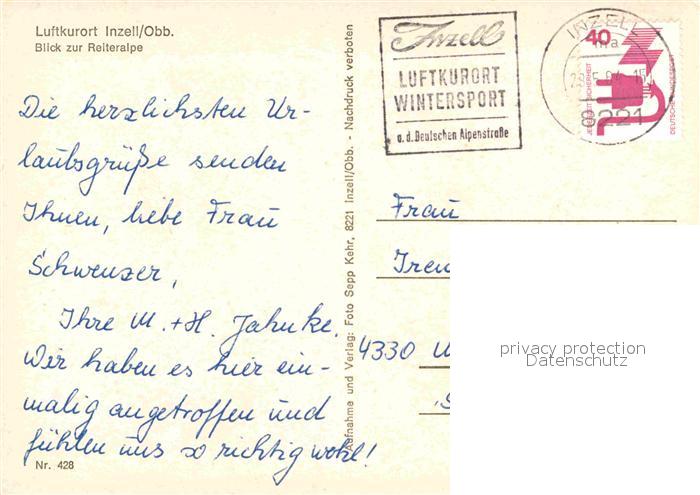 Luftkurort Inzell/Obb.
Blick zur Reiteralpe
Die herzlichsten Ur-
laubsgrüße senden
Ihnen, liebe Frau
Schwenzer,
Ihre M. + H. Jahnke.
Wir haben es hier ein-
malig angetroffen und
fühlen uns so richtig wohl!
Nr. 428
Aufnahme und Verlag: Foto Sepp Kehr, 8221 Inzell/Obb. - Nachdruck verboten
Inzell
LUFTKURORT
WINTERSPORT
a. d. Deutschen Alpenstraße
INZELL
8221
40
JEDERZEIT SICHERHEIT
DEUTSCHE BUNDESPOST
Frau
Iren
4330
privacy protection
Datenschutz